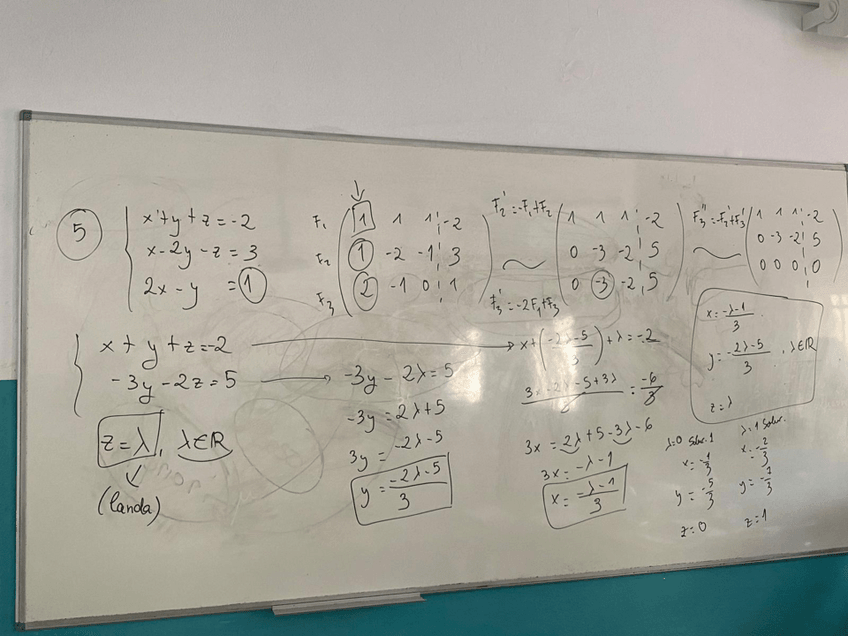 5
x+y+z=-2
x-2y-z=3
2x-y =1
F₁ 1 1 1 -2
F₂ 1 -2 -1 3
F₃ 2 -1 0 1
F₂'=-F₁+F₂
~
F₃'=-2F₁+F₃
1 1 1 -2
0 -3 -2 5
0 -3 -2 5
F₃''=-F₂'+F₃'
~
1 1 1 -2
0 -3 -2 5
0 0 0 0
x+y+z=-2
-3y-2z=5
z=λ, λ∈R
(landa)
-3y-2λ=5
-3y=2λ+5
3y=-2λ-5
y=(-2λ-5)/3
x+((-2λ-5)/3)+λ=-2
3x = 2λ+5-3λ-6
3x=-λ-1
x=(-λ-1)/3
x=(-λ-1)/3
y=(-2λ-5)/3, λ∈R
z=λ
λ=0 Soluc. 1
x=-1/3
y=-5/3
z=0
λ=1 Soluc.
x=-2/3
y=-7/3
z=1